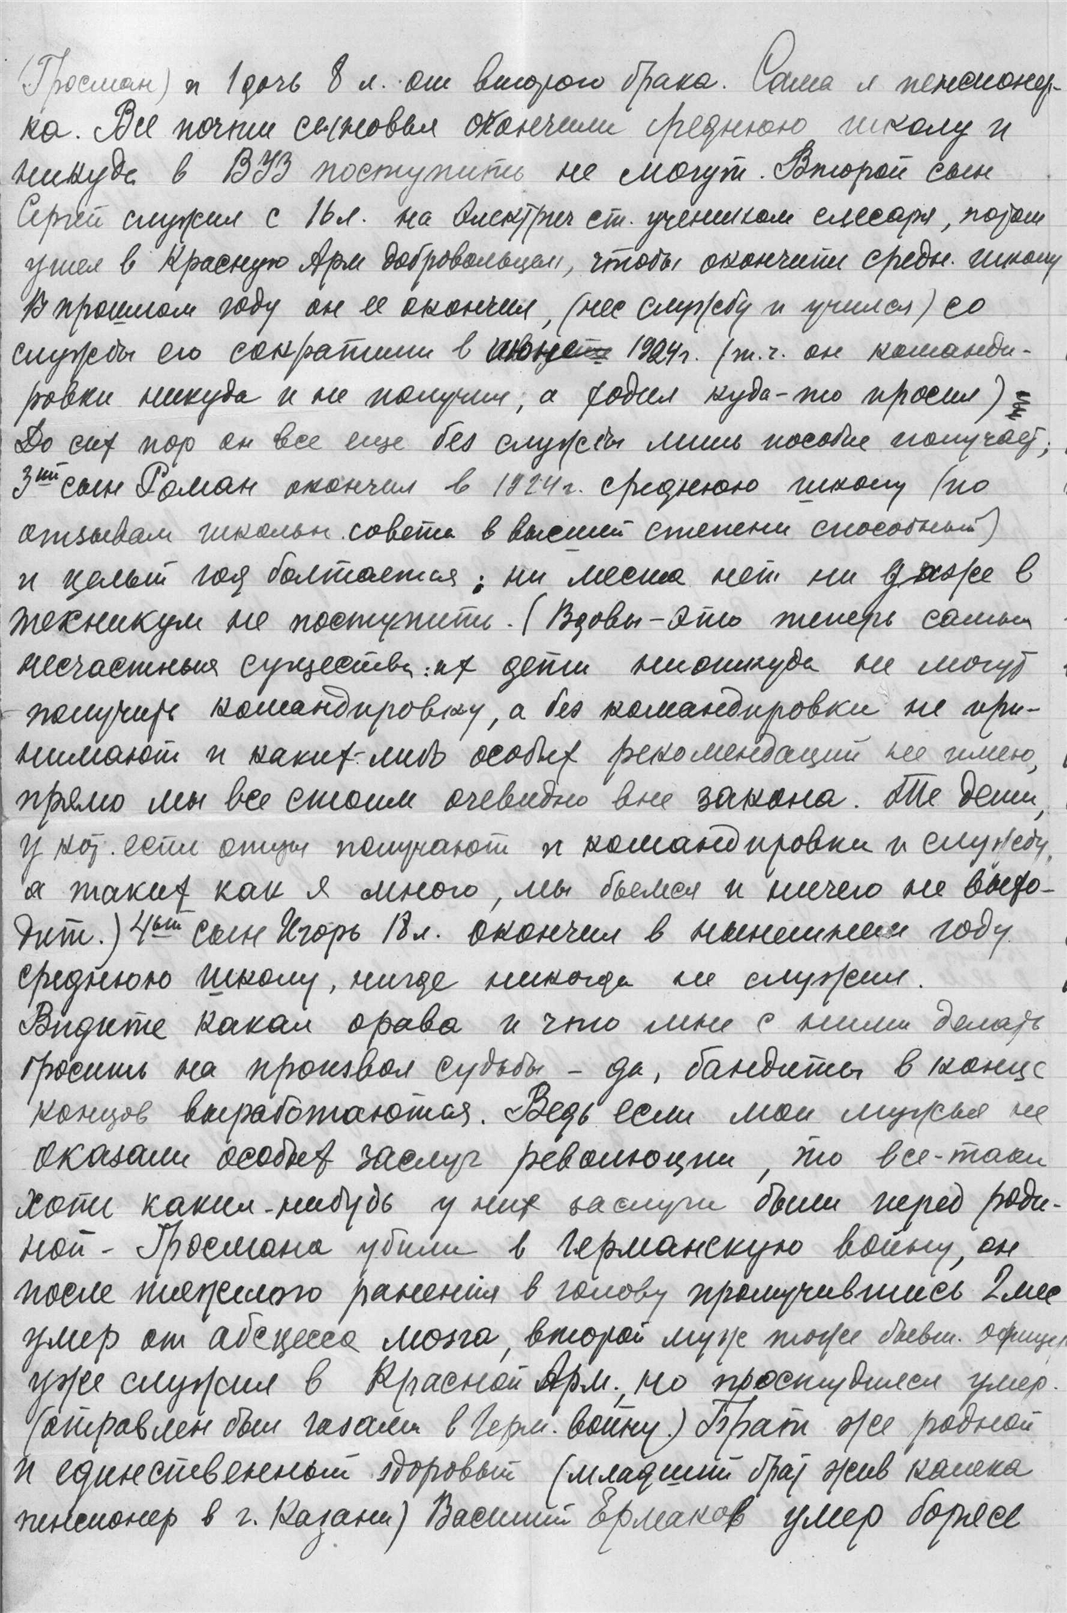 (Гросман) и 1 дочь 8 л. от второго брака. Сама я пенсионер-
ка. Все почти сыновья окончили среднюю школу и
никуда в ВУЗ поступить не могут. Второй сын
Сергей служил с 16 л. на электрич ст. учеником слесаря, потом
ушел в Красную Арм добровольцем, чтобы окончить средн. школу
В прошлом году он ее окончил, (нес службу и учился) со
службы его сократили в 1924 г. (т.ч. он команди-
ровки никуда и не получил, а ходил куда-то просил)
До сих пор он все еще без службы лишь пособие получает;
3ий сын Роман окончил в 1924 г. среднюю школу (по
отзывам школьн. совета в высшей степени способный)
и целый год болтается; ни места нет ни даже в
техникум не поступить. (Вдовы - это теперь самыя
несчастныя существа: их дети ниоткуда не могут
получить командировку, а без командировки не при-
нимают и каких-либо особых рекомендаций не имею,
прямо мы все стоим очевидно вне закона. Те дети,
у кот. есть отцы получают и командировки и службу,
а таких как я много, мы бьемся и ничего не выхо-
дит.) 4ый сын Игорь 18 л. окончил в нынешнем году
среднюю школу, нигде никогда не служил.
Видите какая орава и что мне с ними делать
бросить на произвол судьбы - да, бандиты в конце
концов выработаются. Ведь если мои мужья не
оказали особых заслуг революции, то все-таки
хоть какия-нибудь у них заслуги были перед роди-
ной - Гросмана убили в Германскую войну, он
после тяжелого ранения в голову промучившись 2 мес
умер от абсцесса мозга, второй муж тоже бывш. офицер
уже служил в Красной Арм., но простудился умер.
(отравлен был газами в Герм. войну.) Брат же родной
и единственный здоровый (младший брат жив калека
пенсионер в г. Казани) Василий Ермаков умер борясь